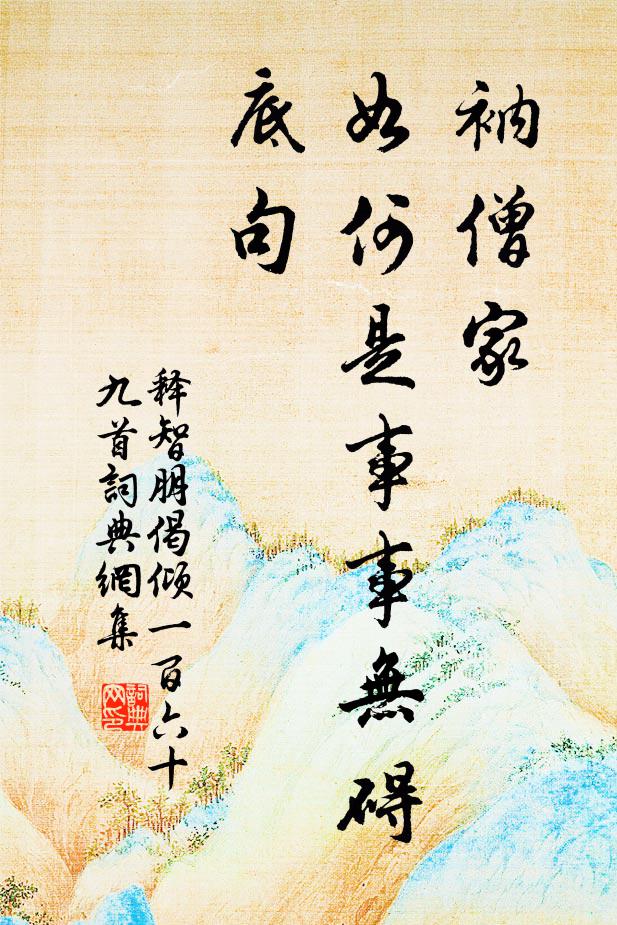 衲僧家
如何是事事無碍
底句
释智朋偈倾一百六十
九首詞典網集
詞典
网印